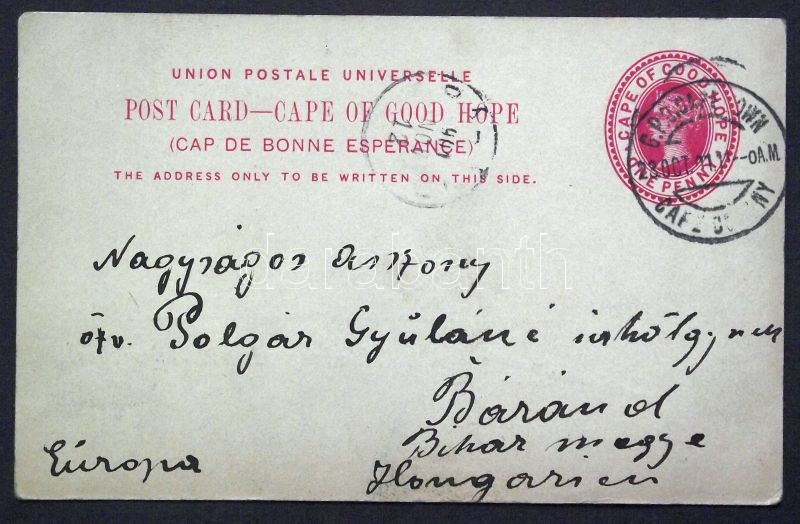 UNION POSTALE UNIVERSELLE
POST CARD—CAPE OF GOOD HOPE
(CAP DE BONNE ESPERANCE)
THE ADDRESS ONLY TO BE WRITTEN ON THIS SIDE.
CAPE OF GOOD HOPE
ONE PENNY
G.P.O. TOWN
OCT
A.M.
CAPE
12
NOV
901
Nagyságos Asszony
özv. Polgár Gyuláné úrhölgynek
Báránd
Bihar megye
Európa
Hongarien
darabanth